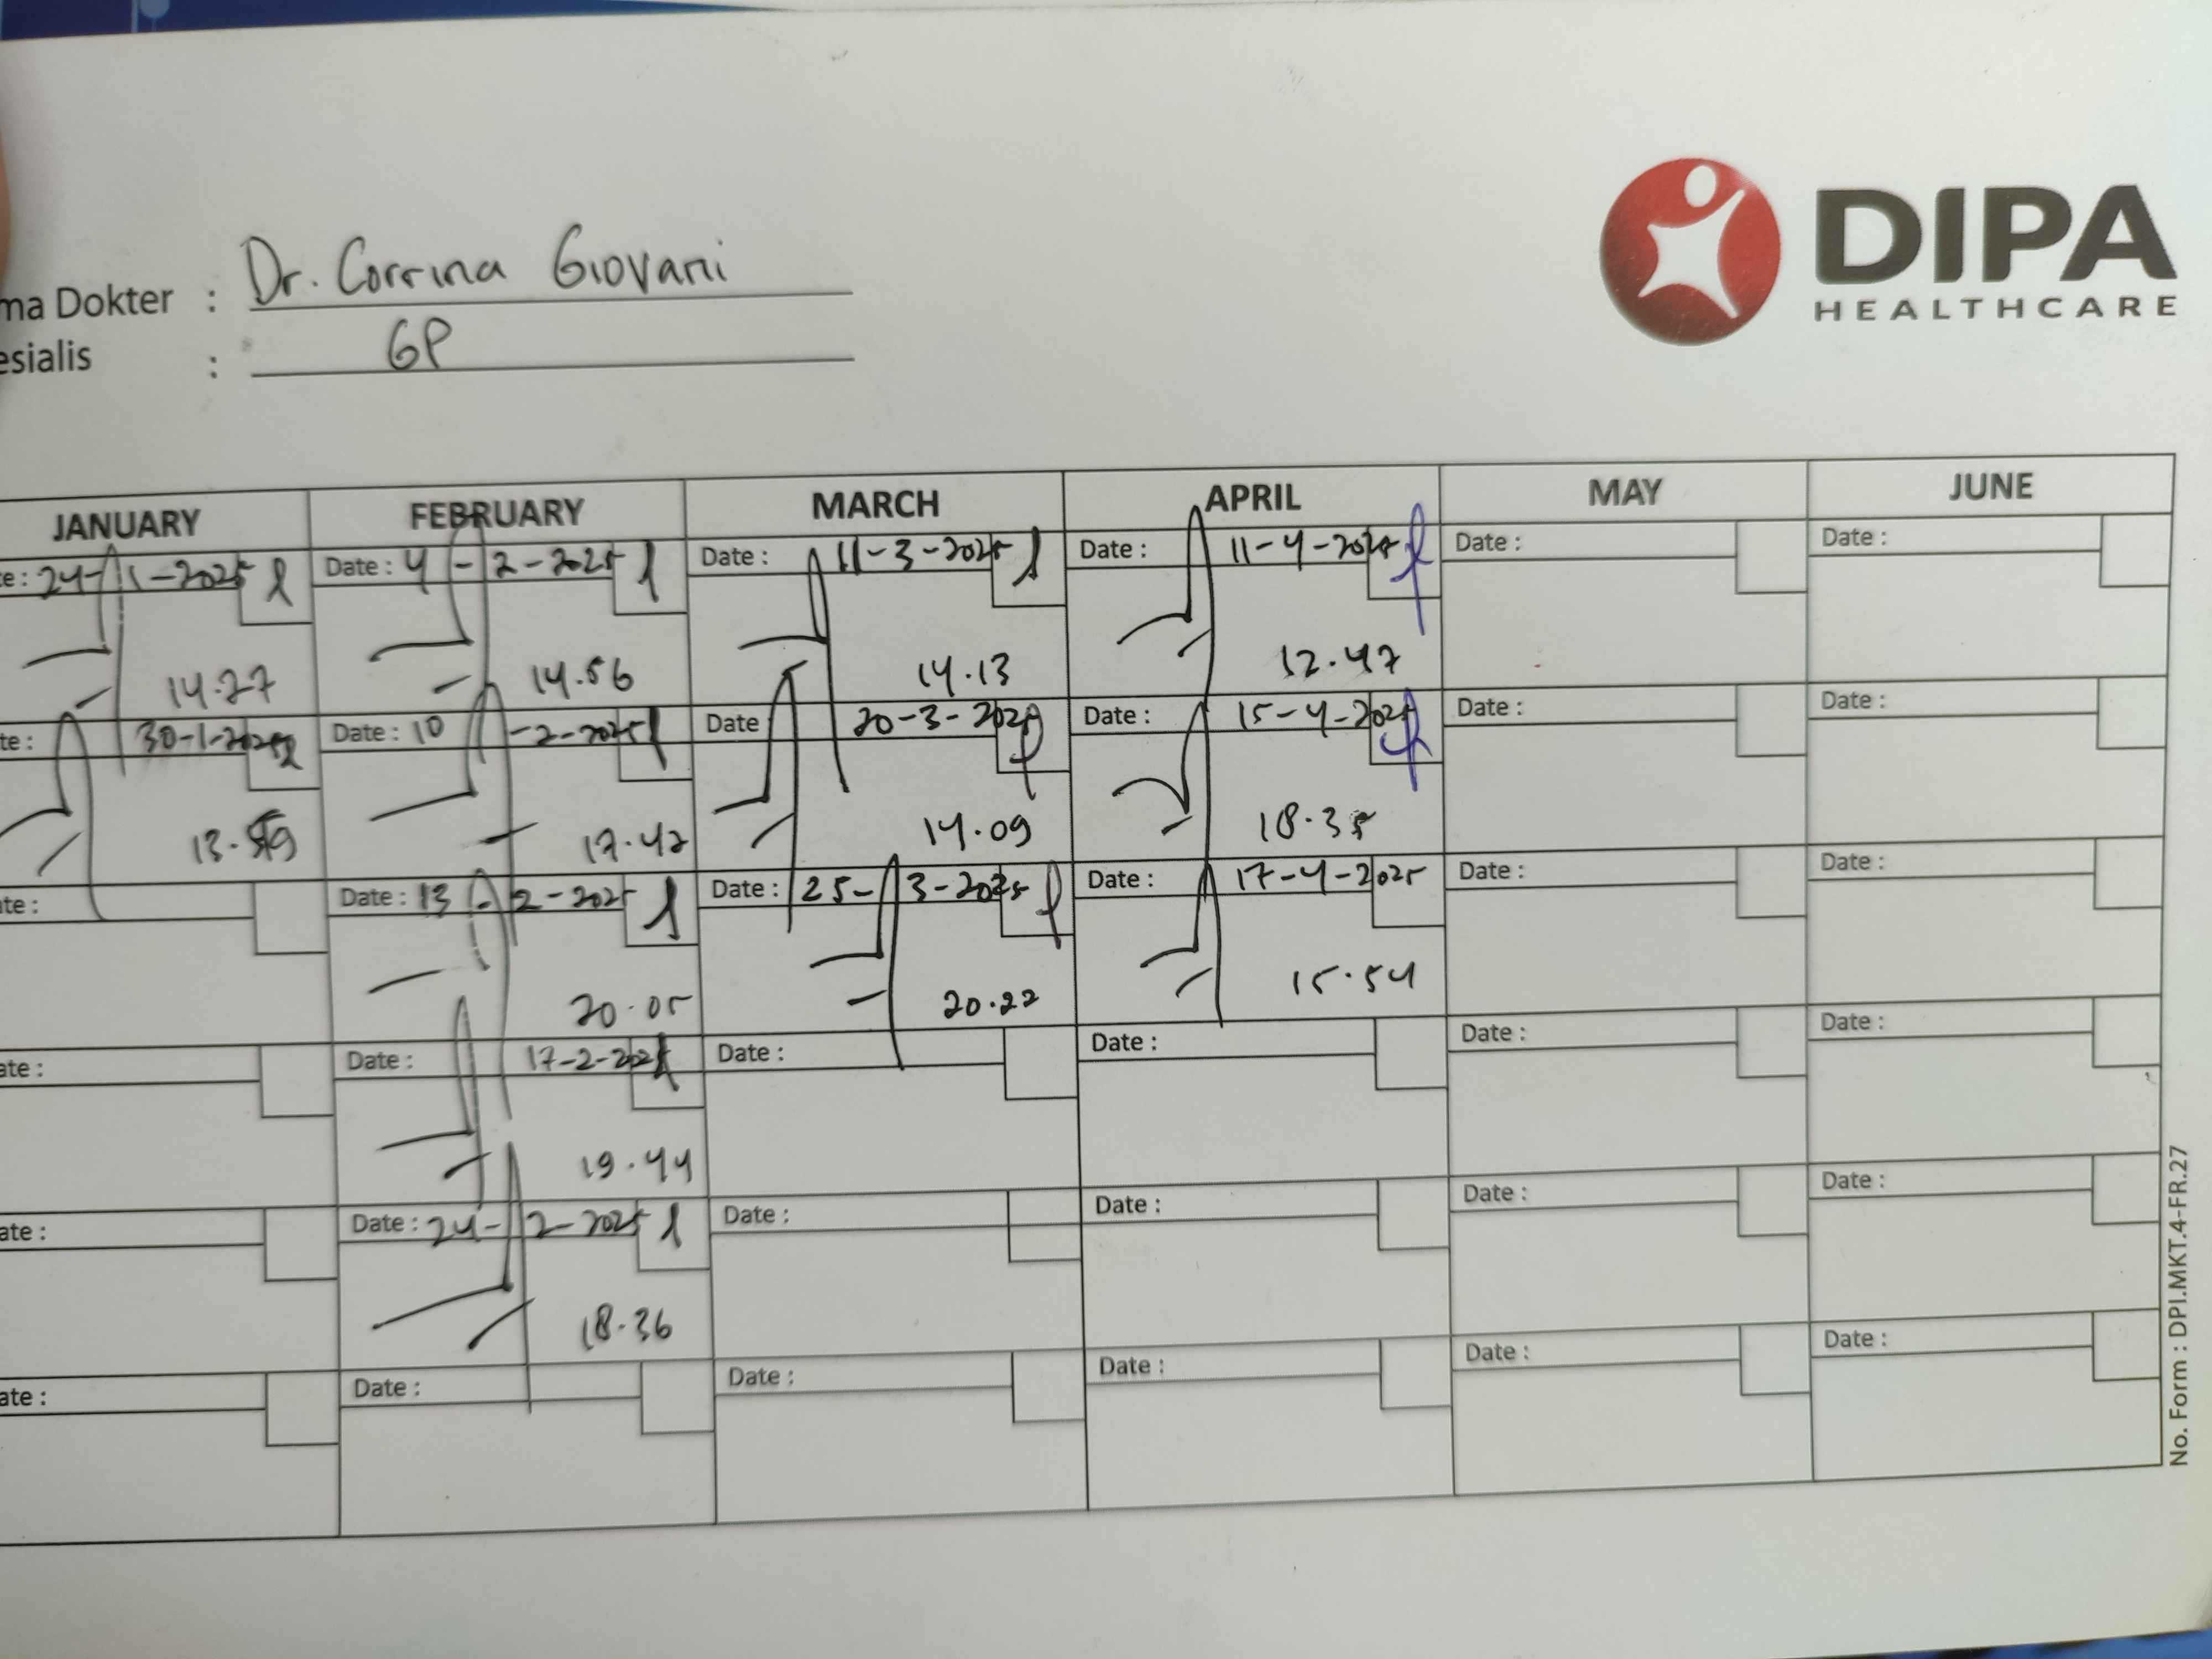 DIPA
HEALTHCARE
ma Dokter : Dr. Corrina Giovani
esialis : GP
JANUARY FEBRUARY MARCH APRIL MAY JUNE
e : 24-1-2025 Date : 4-2-2025 Date : 11-3-2025 Date : 11-4-2025 Date : Date :
14.27 14.56 14.13 12.47
te : 30-1-2025 Date : 10-2-2025 Date 20-3-2025 Date : 15-4-2025 Date : Date :
13.59 17.42 14.09 18.35
te : Date : 13-2-2025 Date : 25-3-2025 Date : 17-4-2025 Date : Date :
20.05 20.22 15.54
ate : Date : 17-2-2025 Date : Date : Date : Date :
19.44
ate : Date : 24-2-2025 Date : Date : Date : Date :
18.36
ate : Date : Date : Date : Date : Date :
No. Form : DPI.MKT.4-FR.27